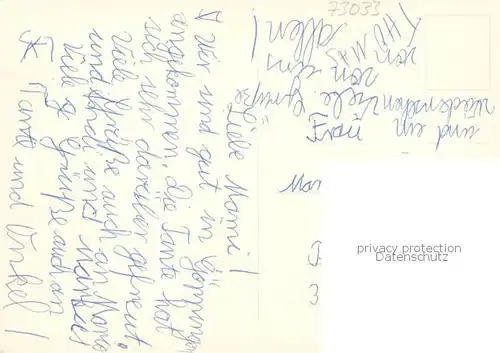 Liebe Mami!
Wir sind gut in Gönningen
angekommen die Tante hat
sich sehr darüber gefreut.
Viele Grüße auch an Mama
und Ferdi und Markus
Viele Grüße auch an
Tante und Onkel!
und ein
Wiedersehen Viele Grüße
von uns
allen!
von
THOMAS
73033
privacy protection
Datenschutz